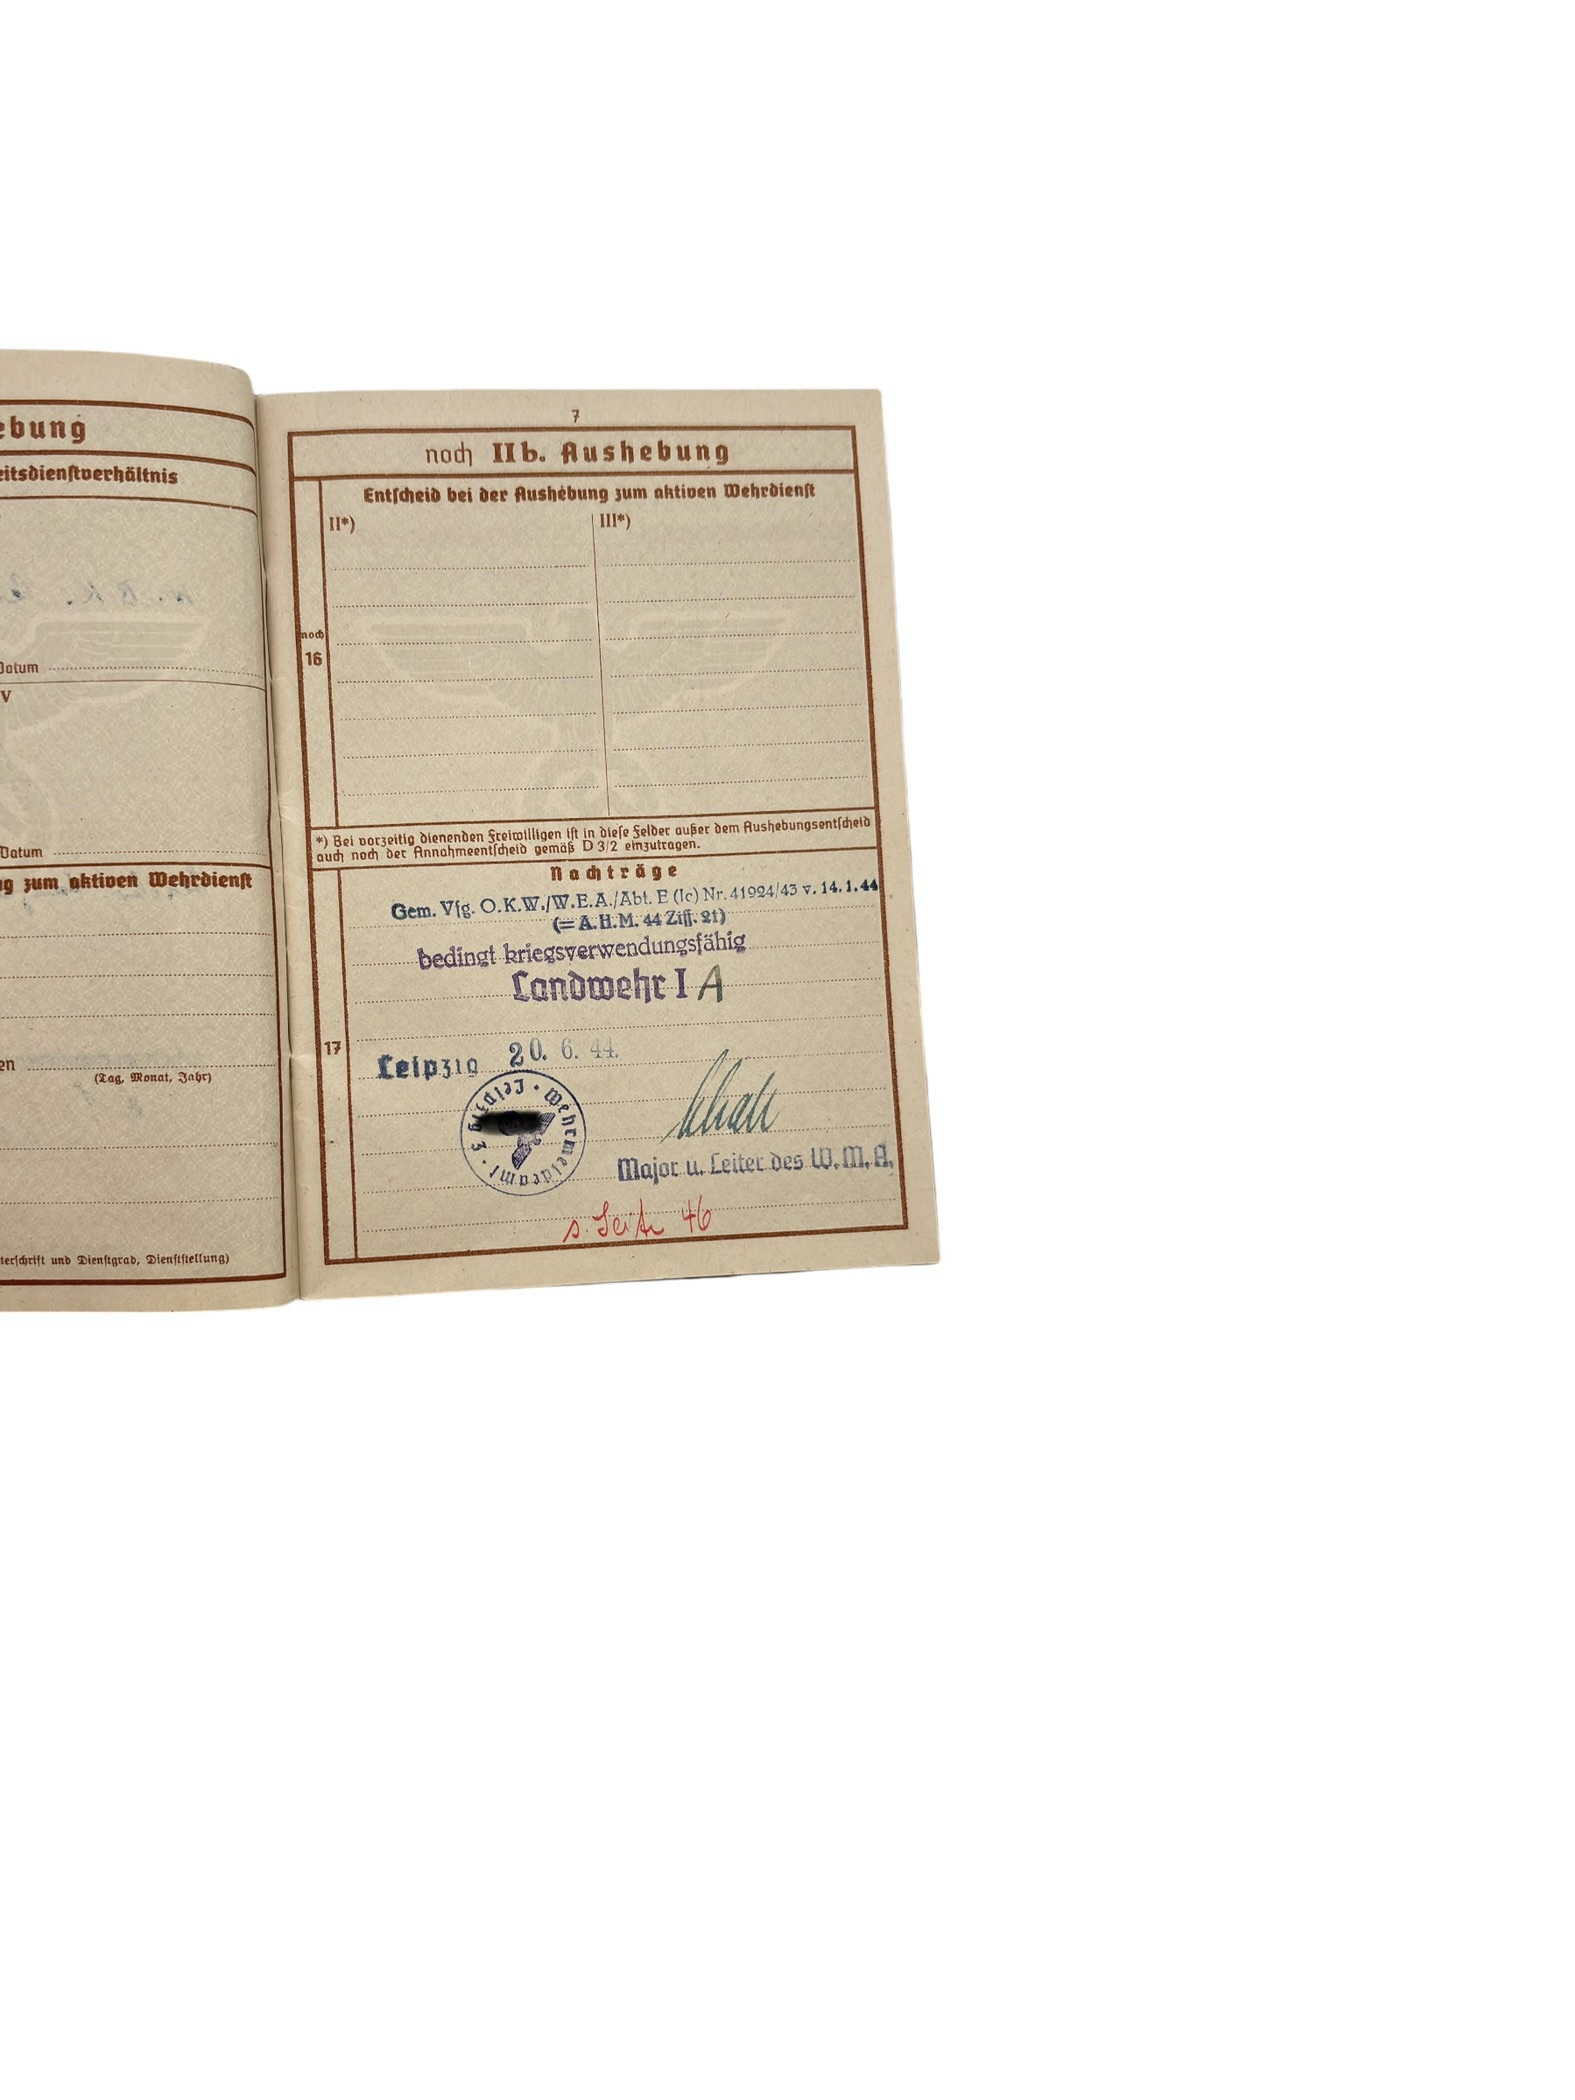 ebung
eitsdienstverhältnis
Datum
V
Datum
ng zum aktiven Wehrdienst
en
(Tag, Monat, Jahr)
terschrift und Dienstgrad, Dienststellung)
7
noch IIb. Aushebung
Entscheid bei der Aushebung zum aktiven Wehrdienst
II*) III*)
noch
16
*) Bei vorzeitig dienenden Freiwilligen ist in diese Felder außer dem Aushebungsentscheid
auch noch der Annahmeentscheid gemäß D 3/2 einzutragen.
Nachträge
Gem. Vfg. O.K.W./W.E.A./Abt. E (Ic) Nr. 41924/43 v. 14.1.44
(= A.H.M. 44 Ziff. 21)
bedingt kriegsverwendungsfähig
Landwehr I A
17
Leipzig 20. 6. 44.
Wehrmeldeamt · Leipzig 3 ·
Major u. Leiter des W.M.A.
s. Seite 46